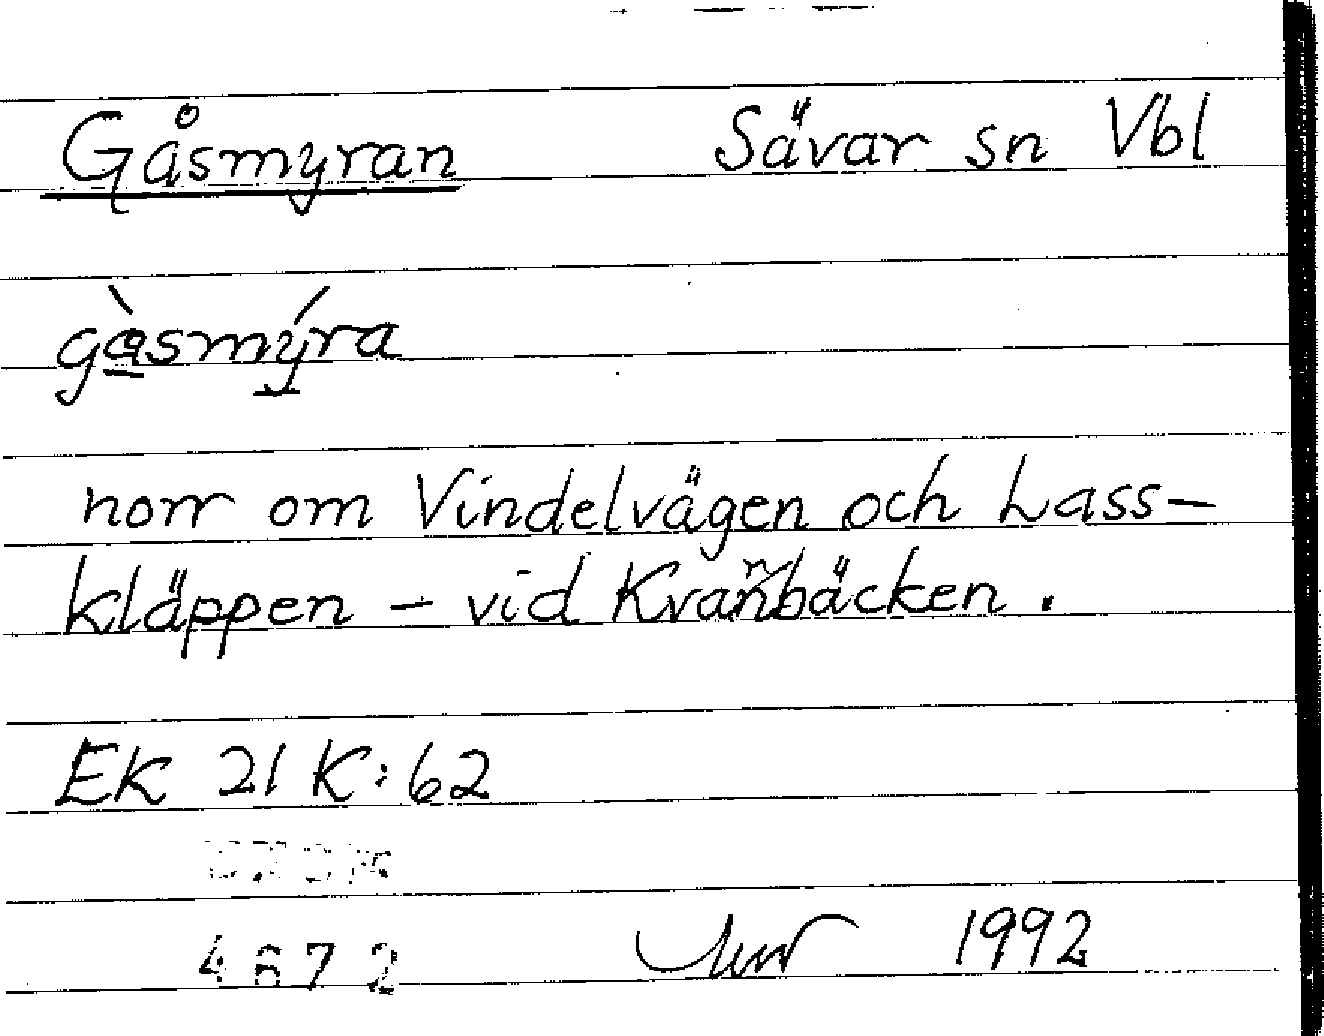 Gåsmyran Sävar sn Vbl
gàsmýra
norr om Vindelvägen och Lass-
kläppen - vid Kvarnbäcken.
EK 21 K:62
4672 1992